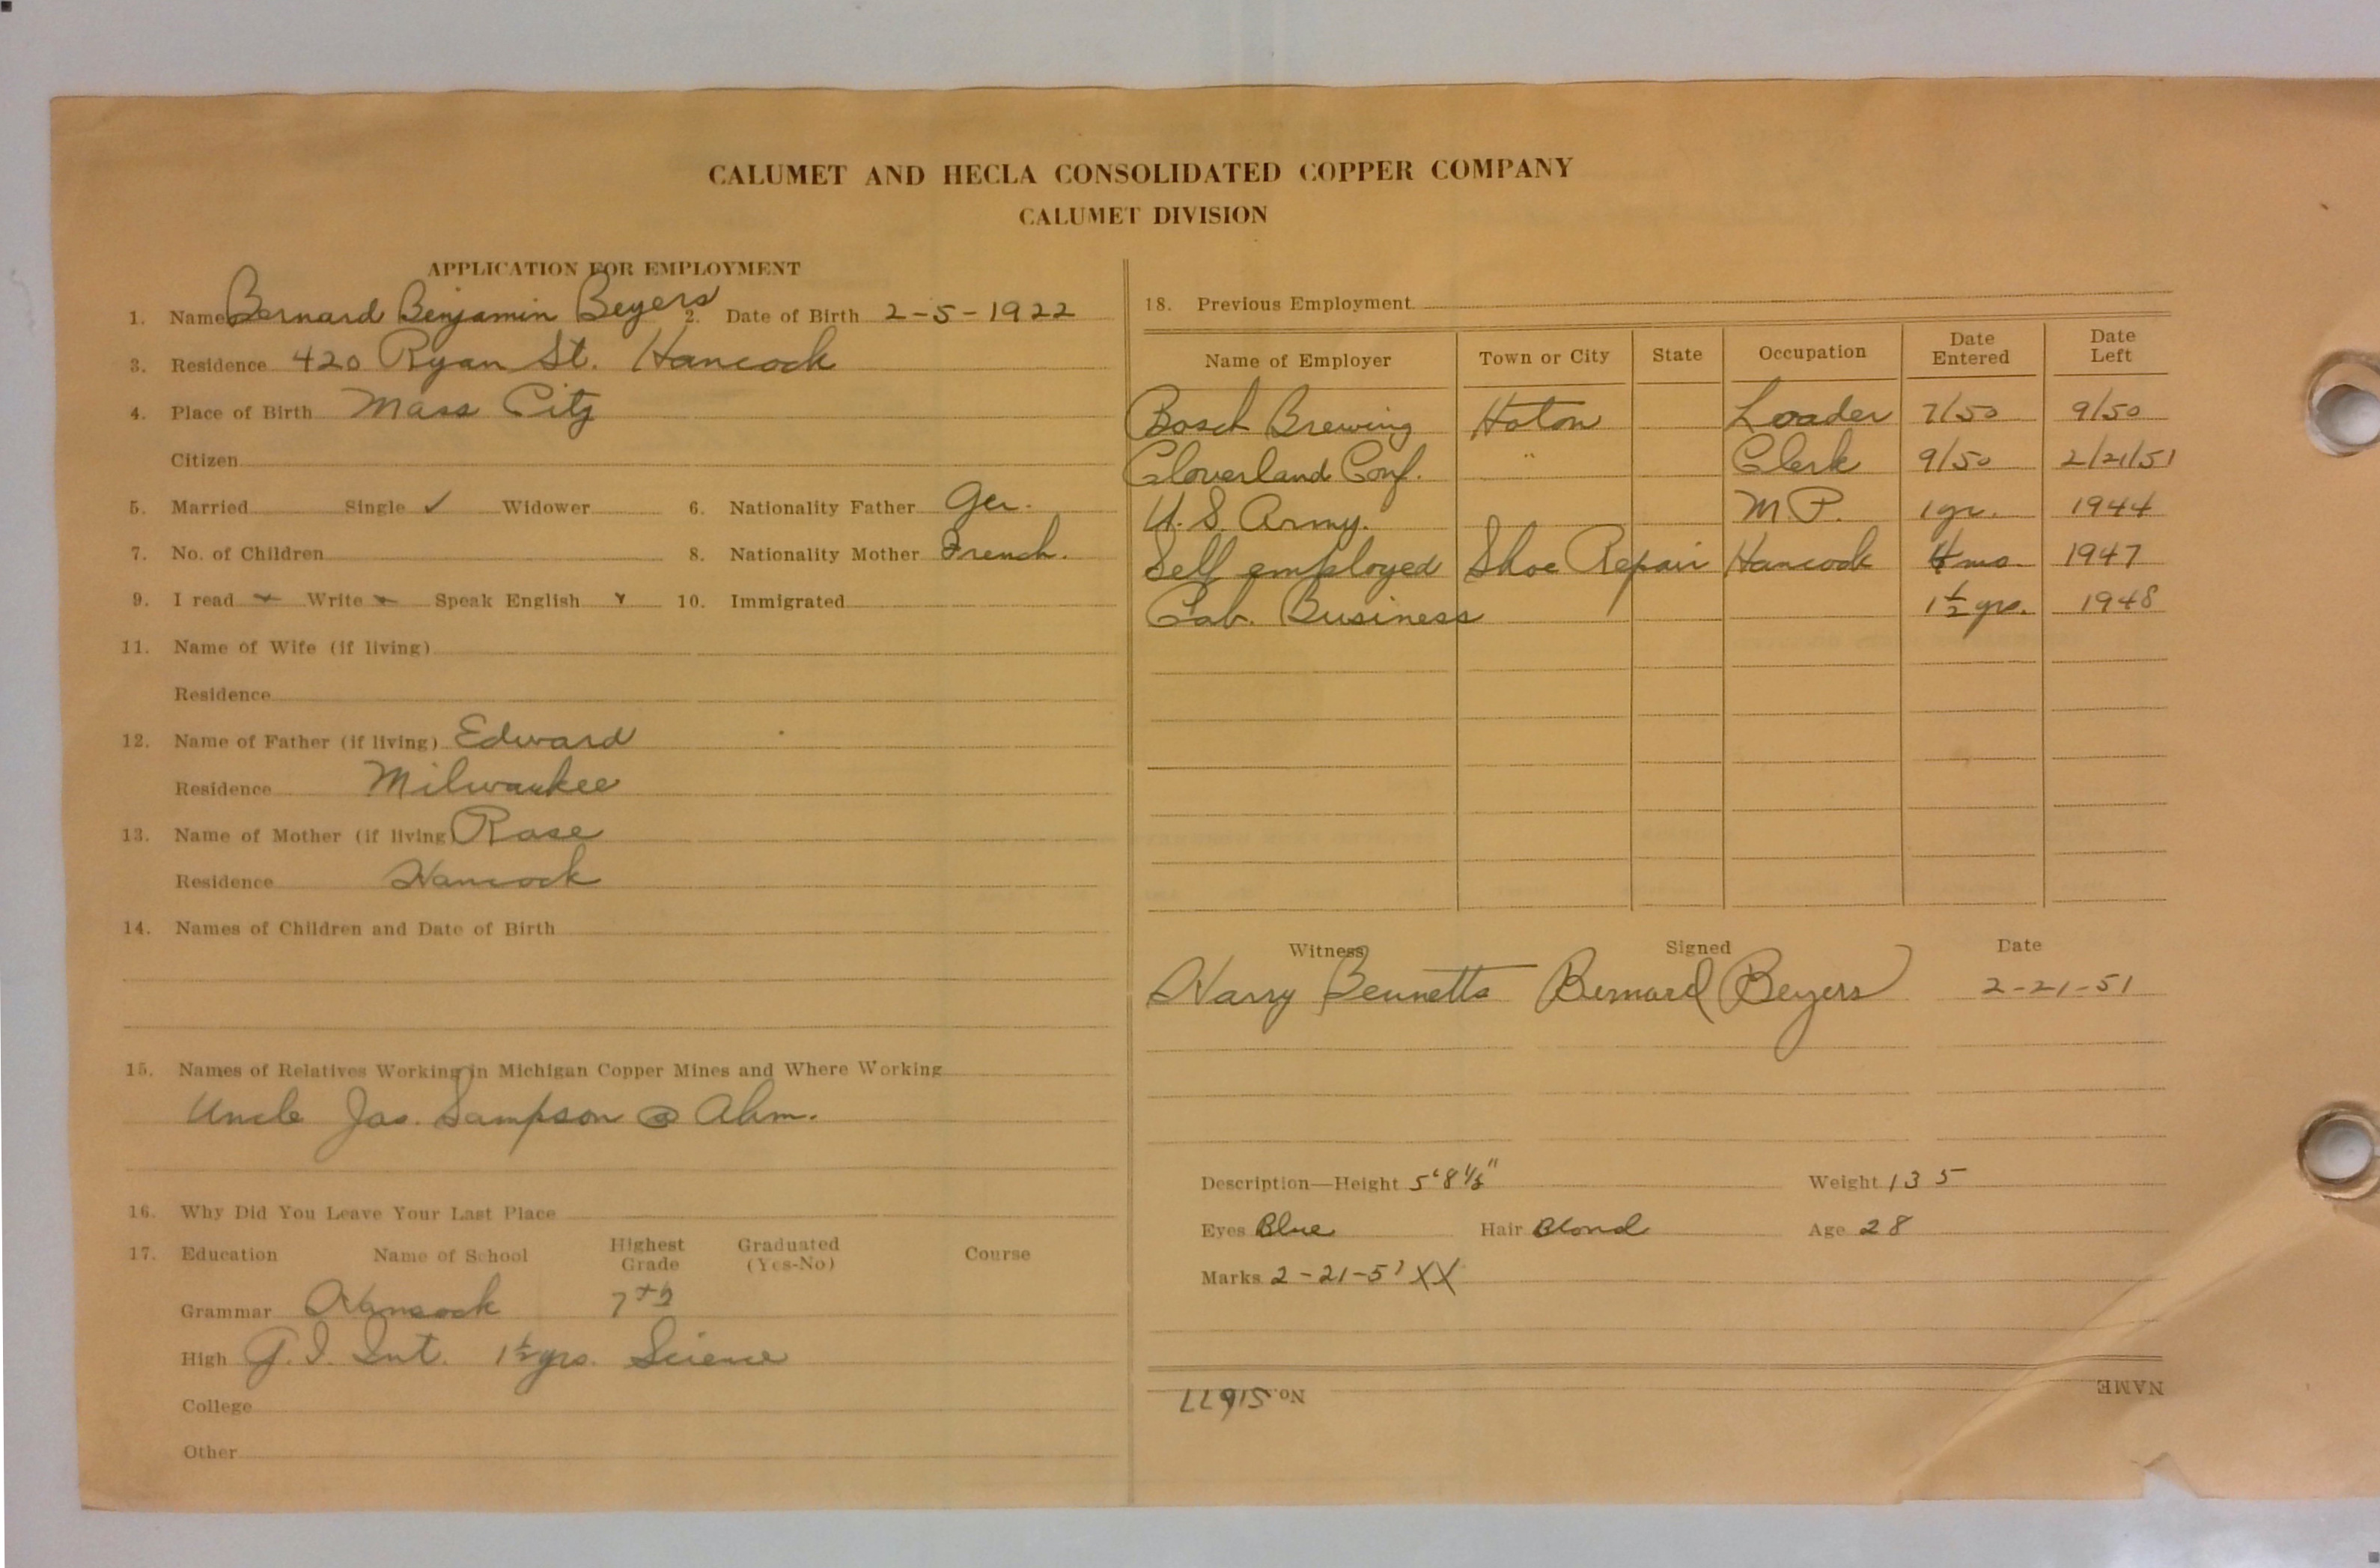 CALUMET AND HECLA CONSOLIDATED COPPER COMPANY
CALUMET DIVISION
APPLICATION FOR EMPLOYMENT
1. Name Bernard Benjamin Beyers 2. Date of Birth 2-5-1922
3. Residence 420 Ryan St. Hancock
4. Place of Birth Mass City
Citizen
5. Married Single ✓ Widower 6. Nationality Father Ger.
7. No. of Children 8. Nationality Mother French.
9. I read Write Speak English 10. Immigrated
11. Name of Wife (if living)
Residence
12. Name of Father (if living) Edward
Residence Milwaukee
13. Name of Mother (if living) Rose
Residence Hancock
14. Names of Children and Date of Birth
15. Names of Relatives Working in Michigan Copper Mines and Where Working
Uncle Jas. Sampson @ Ahm.
16. Why Did You Leave Your Last Place
17. Education Name of School Highest Grade Graduated (Yes-No) Course
Grammar Hancock 7th
High G.I. Int. 1½ yrs. Science
College
Other
18. Previous Employment
Name of Employer Town or City State Occupation Date Entered Date Left
Bosch Brewing Hoton Loader 7/50 9/50
Cloverland Conf. " Clerk 9/50 2/21/51
U.S. Army. M.P. 1 yr. 1944
Self employed Shoe Repair Hancock 4 mo. 1947
Cab. Business 1½ yrs. 1948
Witness Signed Date
Harry Bennetts Bernard Beyers 2-21-51
Description—Height 5'8½" Weight 135
Eyes Blue Hair Blond Age 28
Marks 2-21-51 XX
No. 51677 NAME